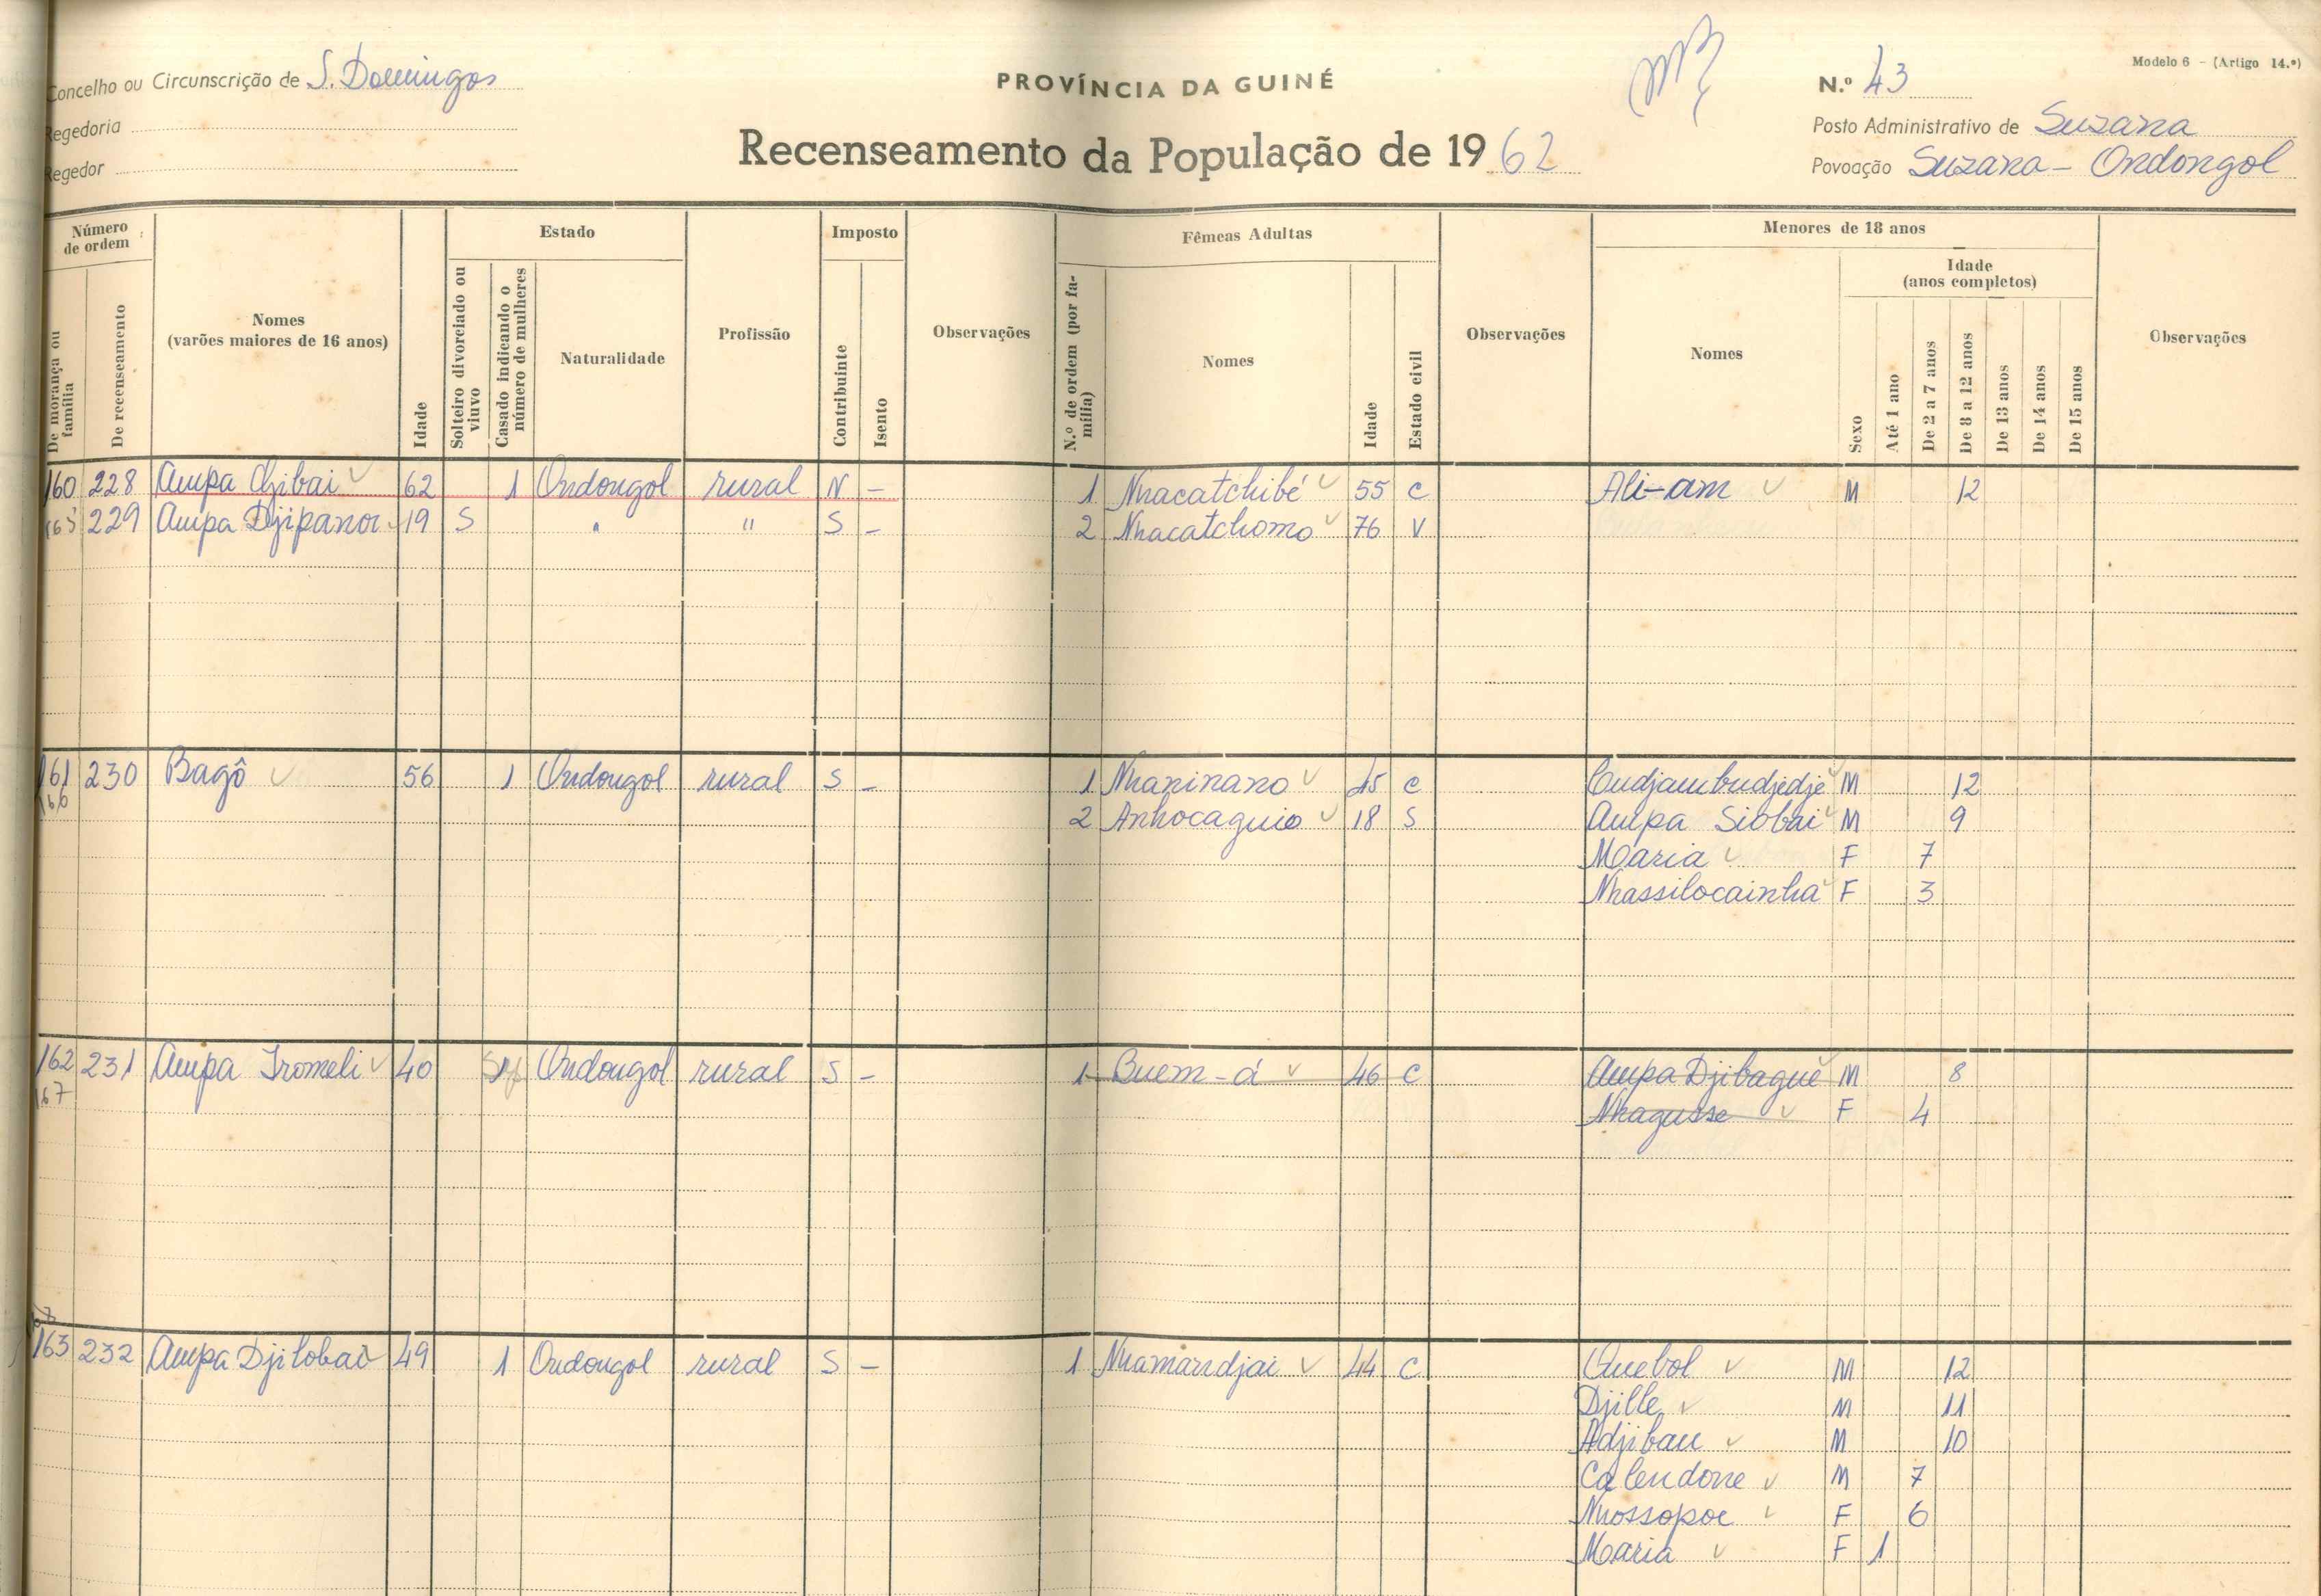 Modelo 6 - (Artigo 14.º)
Concelho ou Circunscrição de S. Domingos
PROVÍNCIA DA GUINÉ
N.º 43
Regedoria
Posto Administrativo de Suzana
Recenseamento da População de 1962
Regedor
Povoação Suzana - Ondongol
Número de ordem
Estado
Imposto
Fêmeas Adultas
Menores de 18 anos
Idade (anos completos)
De morança ou família
De recenseamento
Nomes (varões maiores de 16 anos)
Idade
Solteiro divorciado ou viuvo
Casado indicando o número de mulheres
Naturalidade
Profissão
Contribuinte
Isento
Observações
N.º de ordem (por família)
Nomes
Idade
Estado civil
Observações
Nomes
Sexo
Até 1 ano
De 2 a 7 anos
De 8 a 12 anos
De 13 anos
De 14 anos
De 15 anos
Observações
160 228 Ampa 62 1 Ondongol rural N - 1 Nhacatchibé 55 C Ali-am M 12
165 229 Ampa Djipanor 19 S " " S - 2 Nhacatchomo 76 V
161 230 Bagô 56 1 Ondongol rural S - 1 Nhaninano 45 C Cudjambudjedje M 12
166 2 Anhocaguio 18 S Ampa Siobai M 9
Maria F 7
Nhassilocainha F 3
162 231 Ampa Iromeli 40 Ondongol rural S - 1 Buem-á 46 C Ampa Djibaguê M 8
167 Nhagusse F 4
163 232 Ampa Djilobai 49 1 Ondongol rural S - 1 Nhamandjai 44 C Quebol M 12
Djille M 11
Adjibau M 10
Calendone M 7
Nhossopoe F 6
Maria F 1